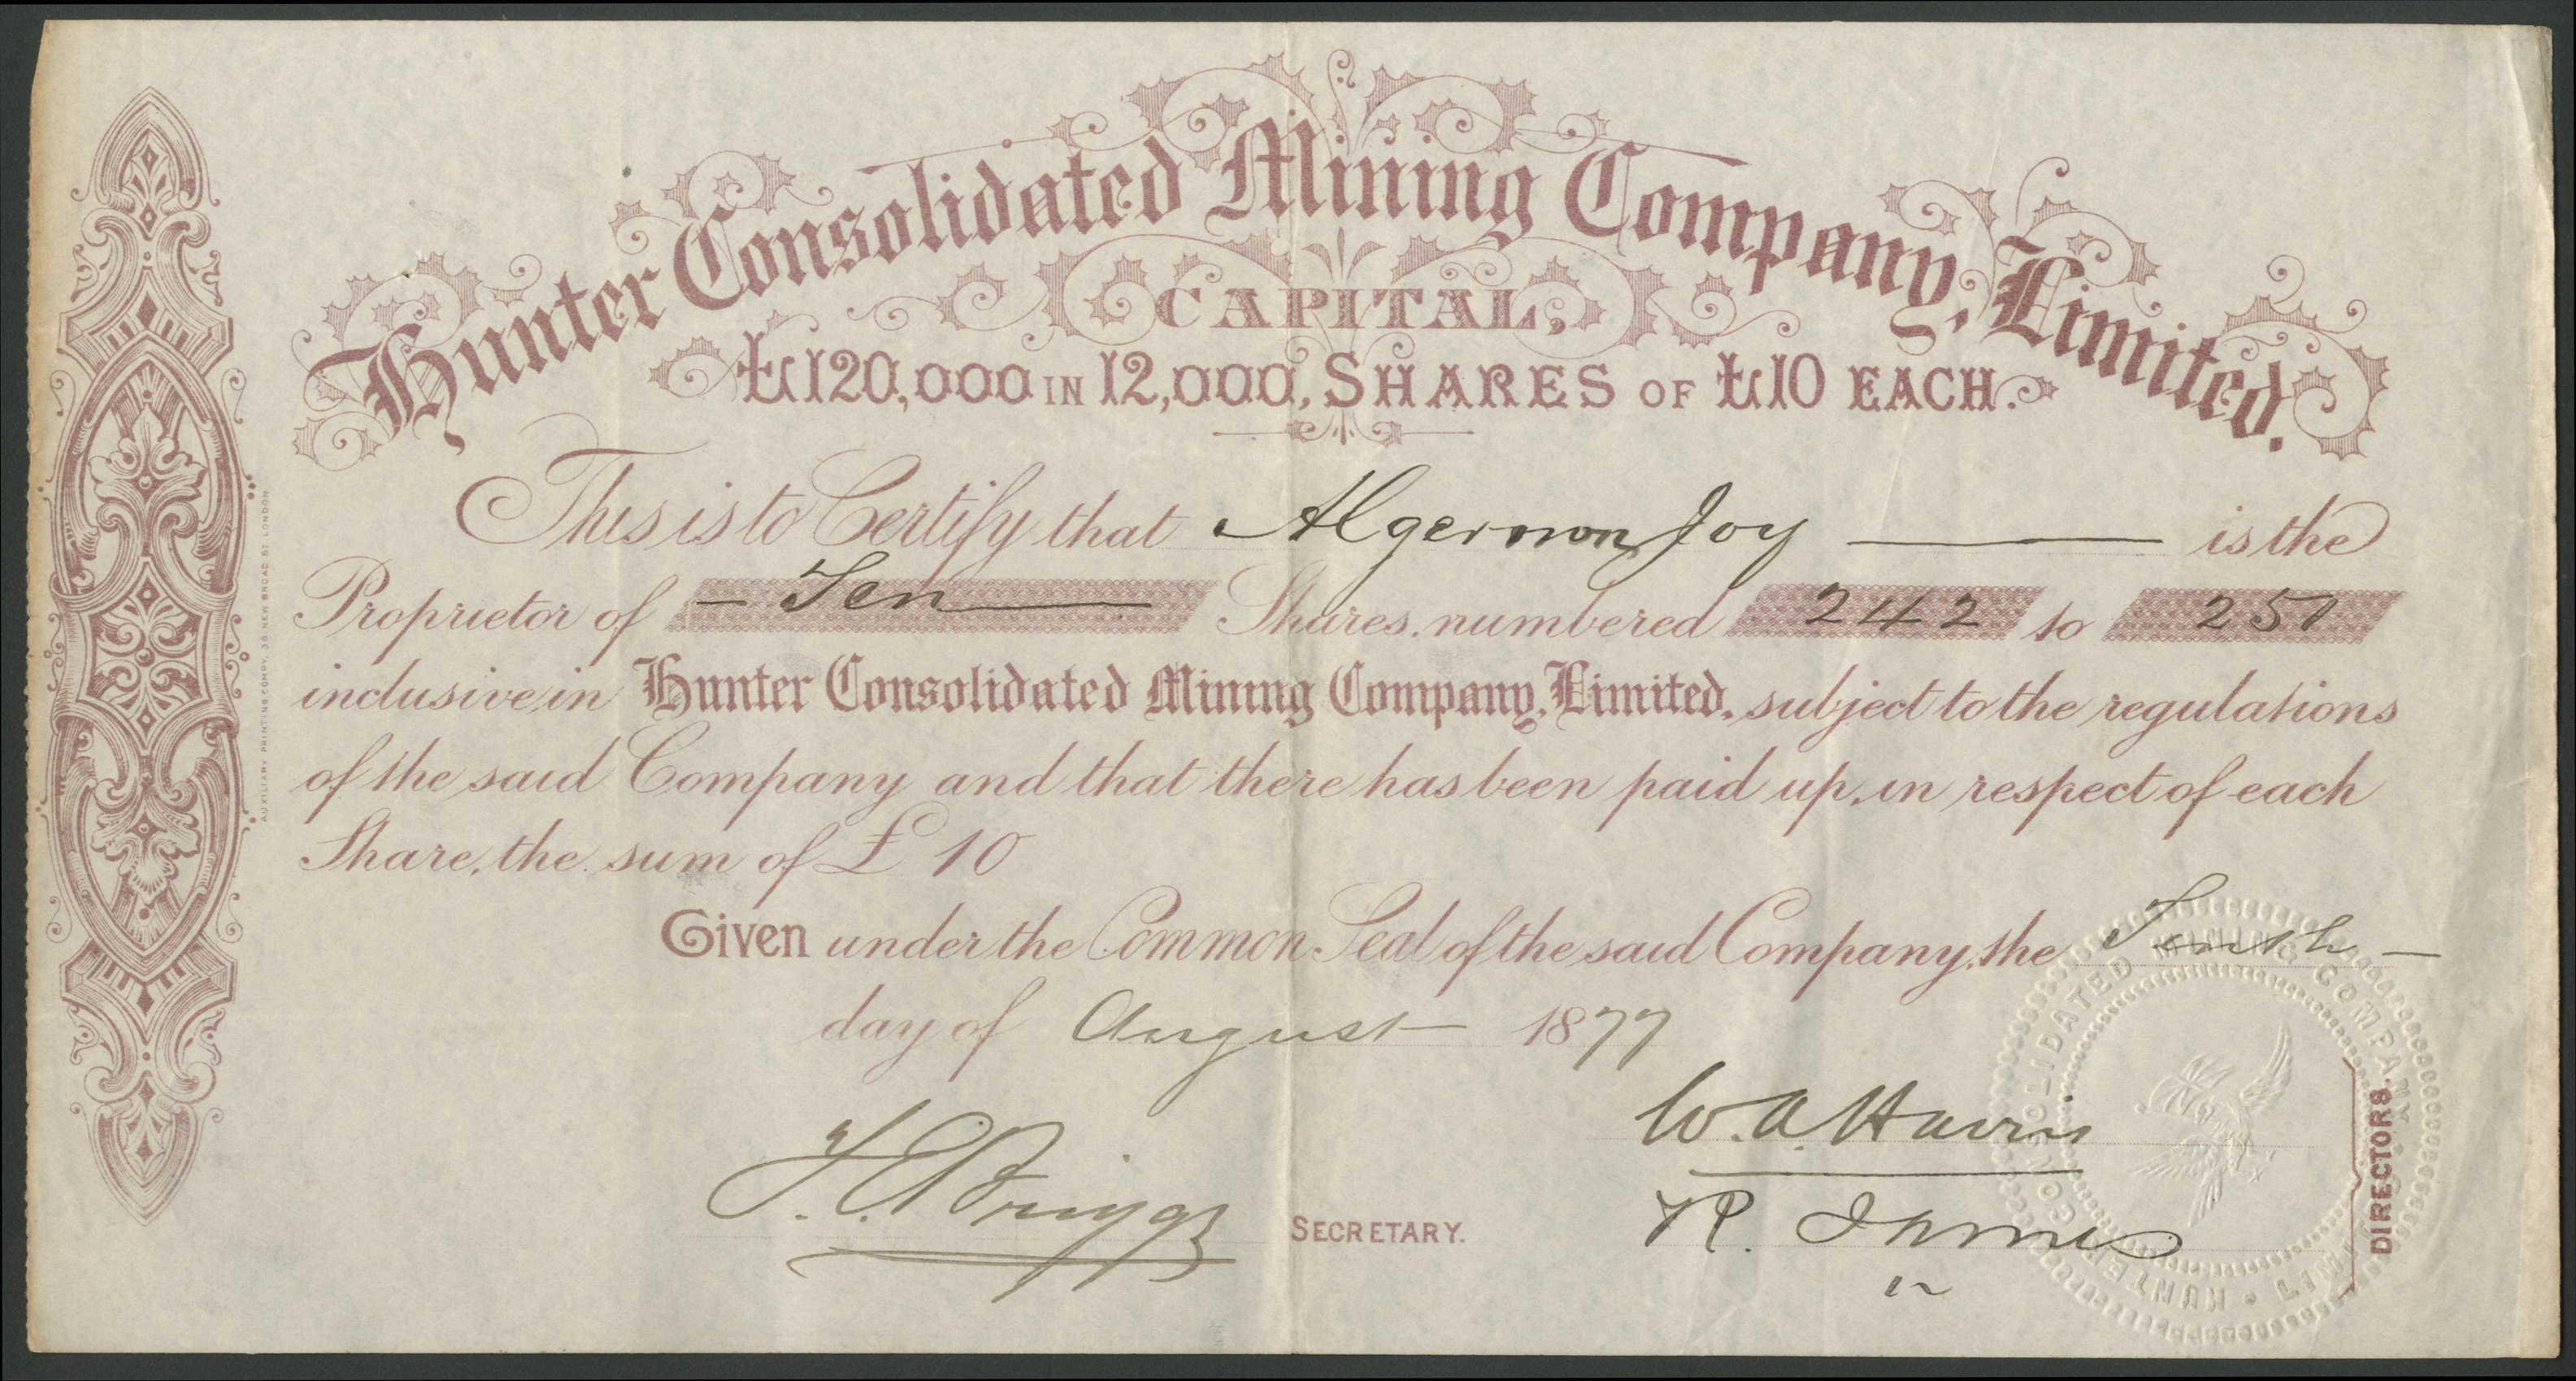 Hunter Consolidated Mining Company, Limited.
CAPITAL,
£120,000 IN 12,000, SHARES OF £10 EACH.
This is to Certify that Algernon Joy is the
Proprietor of Ten Shares, numbered 242 to 251
inclusive in Hunter Consolidated Mining Company, Limited, subject to the regulations
of the said Company and that there has been paid up, in respect of each
Share, the sum of £ 10
Given under the Common Seal of the said Company, the Tenth
day of August 1877
W. A. Harris
SECRETARY.
R.
DIRECTORS.
HUNTER CONSOLIDATED MINING COMPANY LIMITED
AUXILIARY PRINTING COMPY. 36 NEW BROAD ST LONDON